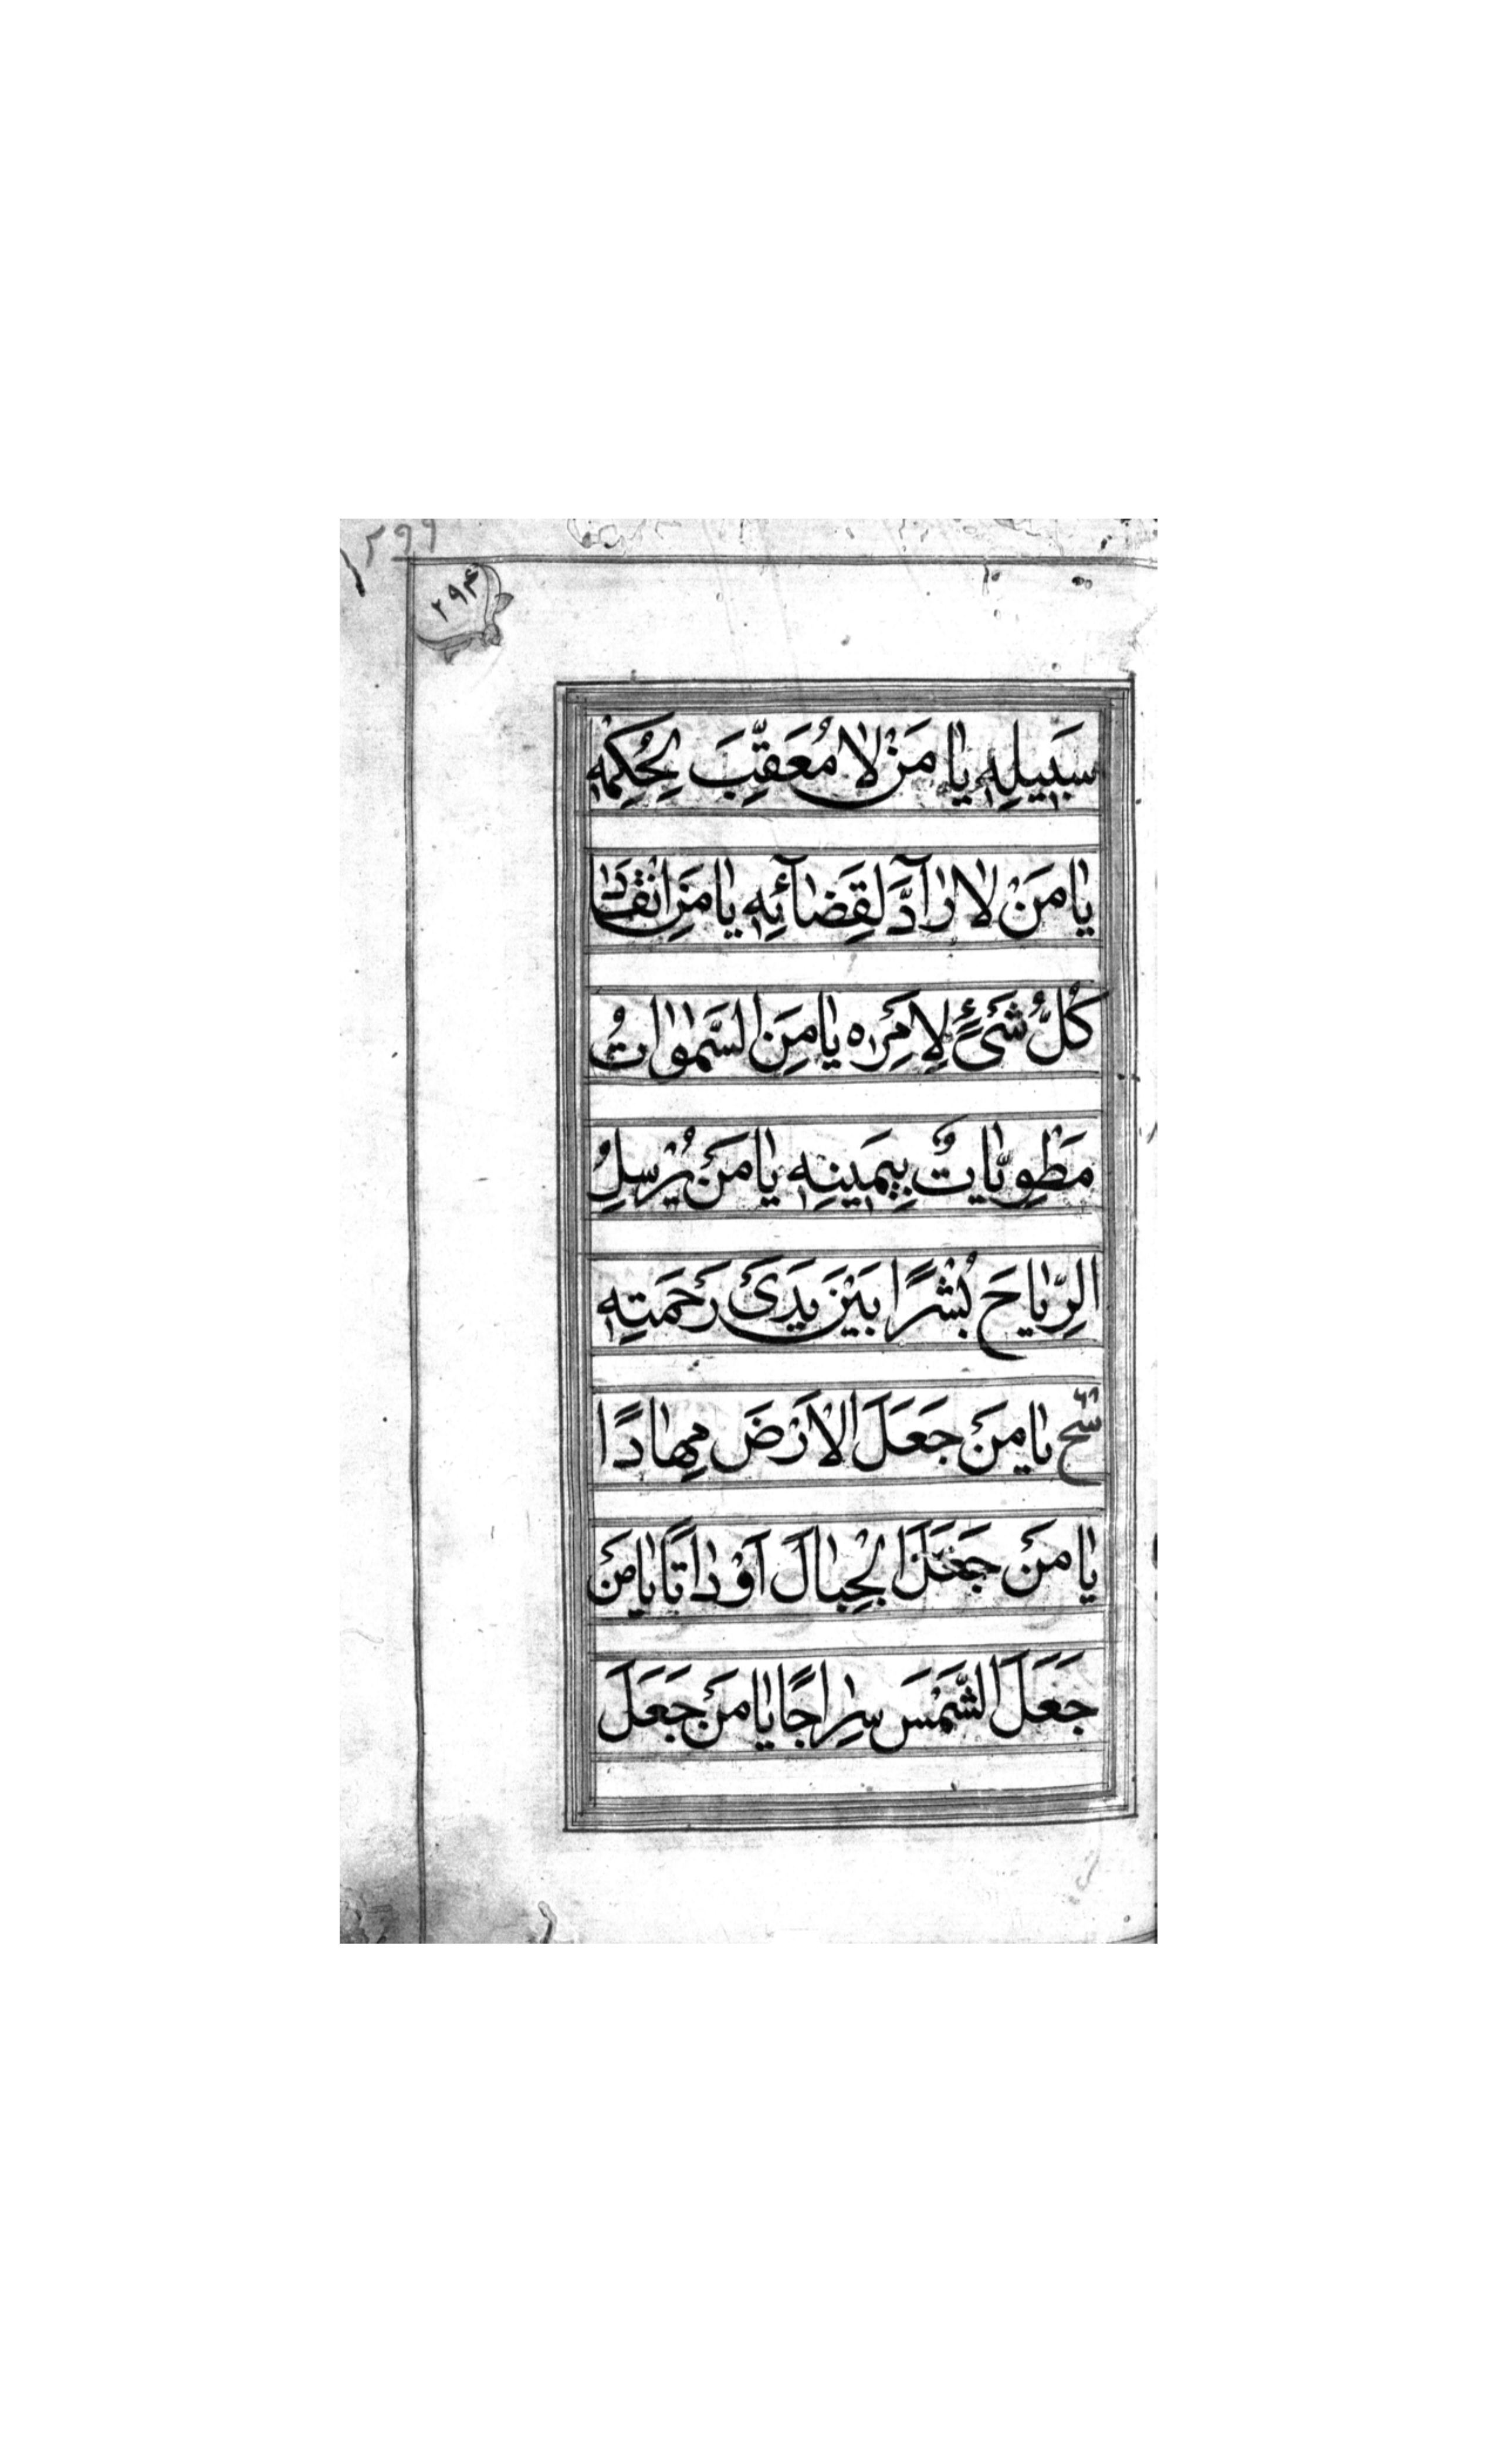 ۲۹۹
۲۹۴
سَبيلِهِ يا مَنْ لا مُعَقِّبَ لِحُكْمِهِ
يا مَنْ لا رآدَّ لِقَضآئِهِ يا مَنِ انْقادَ
كُلُّ شَئٍ لِاَمْرِه يا مَنِ السَّمٰواتُ
مَطْوِيّاتٌ بِيَمينِهِ يا مَنْ يُرْسِلُ
الرِّياحَ بُشْرًا بَيْنَ يَدَىْ رَحْمَتِهِ
سح يا مَنْ جَعَلَ الاَرْضَ مِهادًا
يا مَنْ جَعَلَ الْجِبالَ اَوْتادًا يا مَنْ
جَعَلَ الشَّمْسَ سِراجًا يا مَنْ جَعَلَ